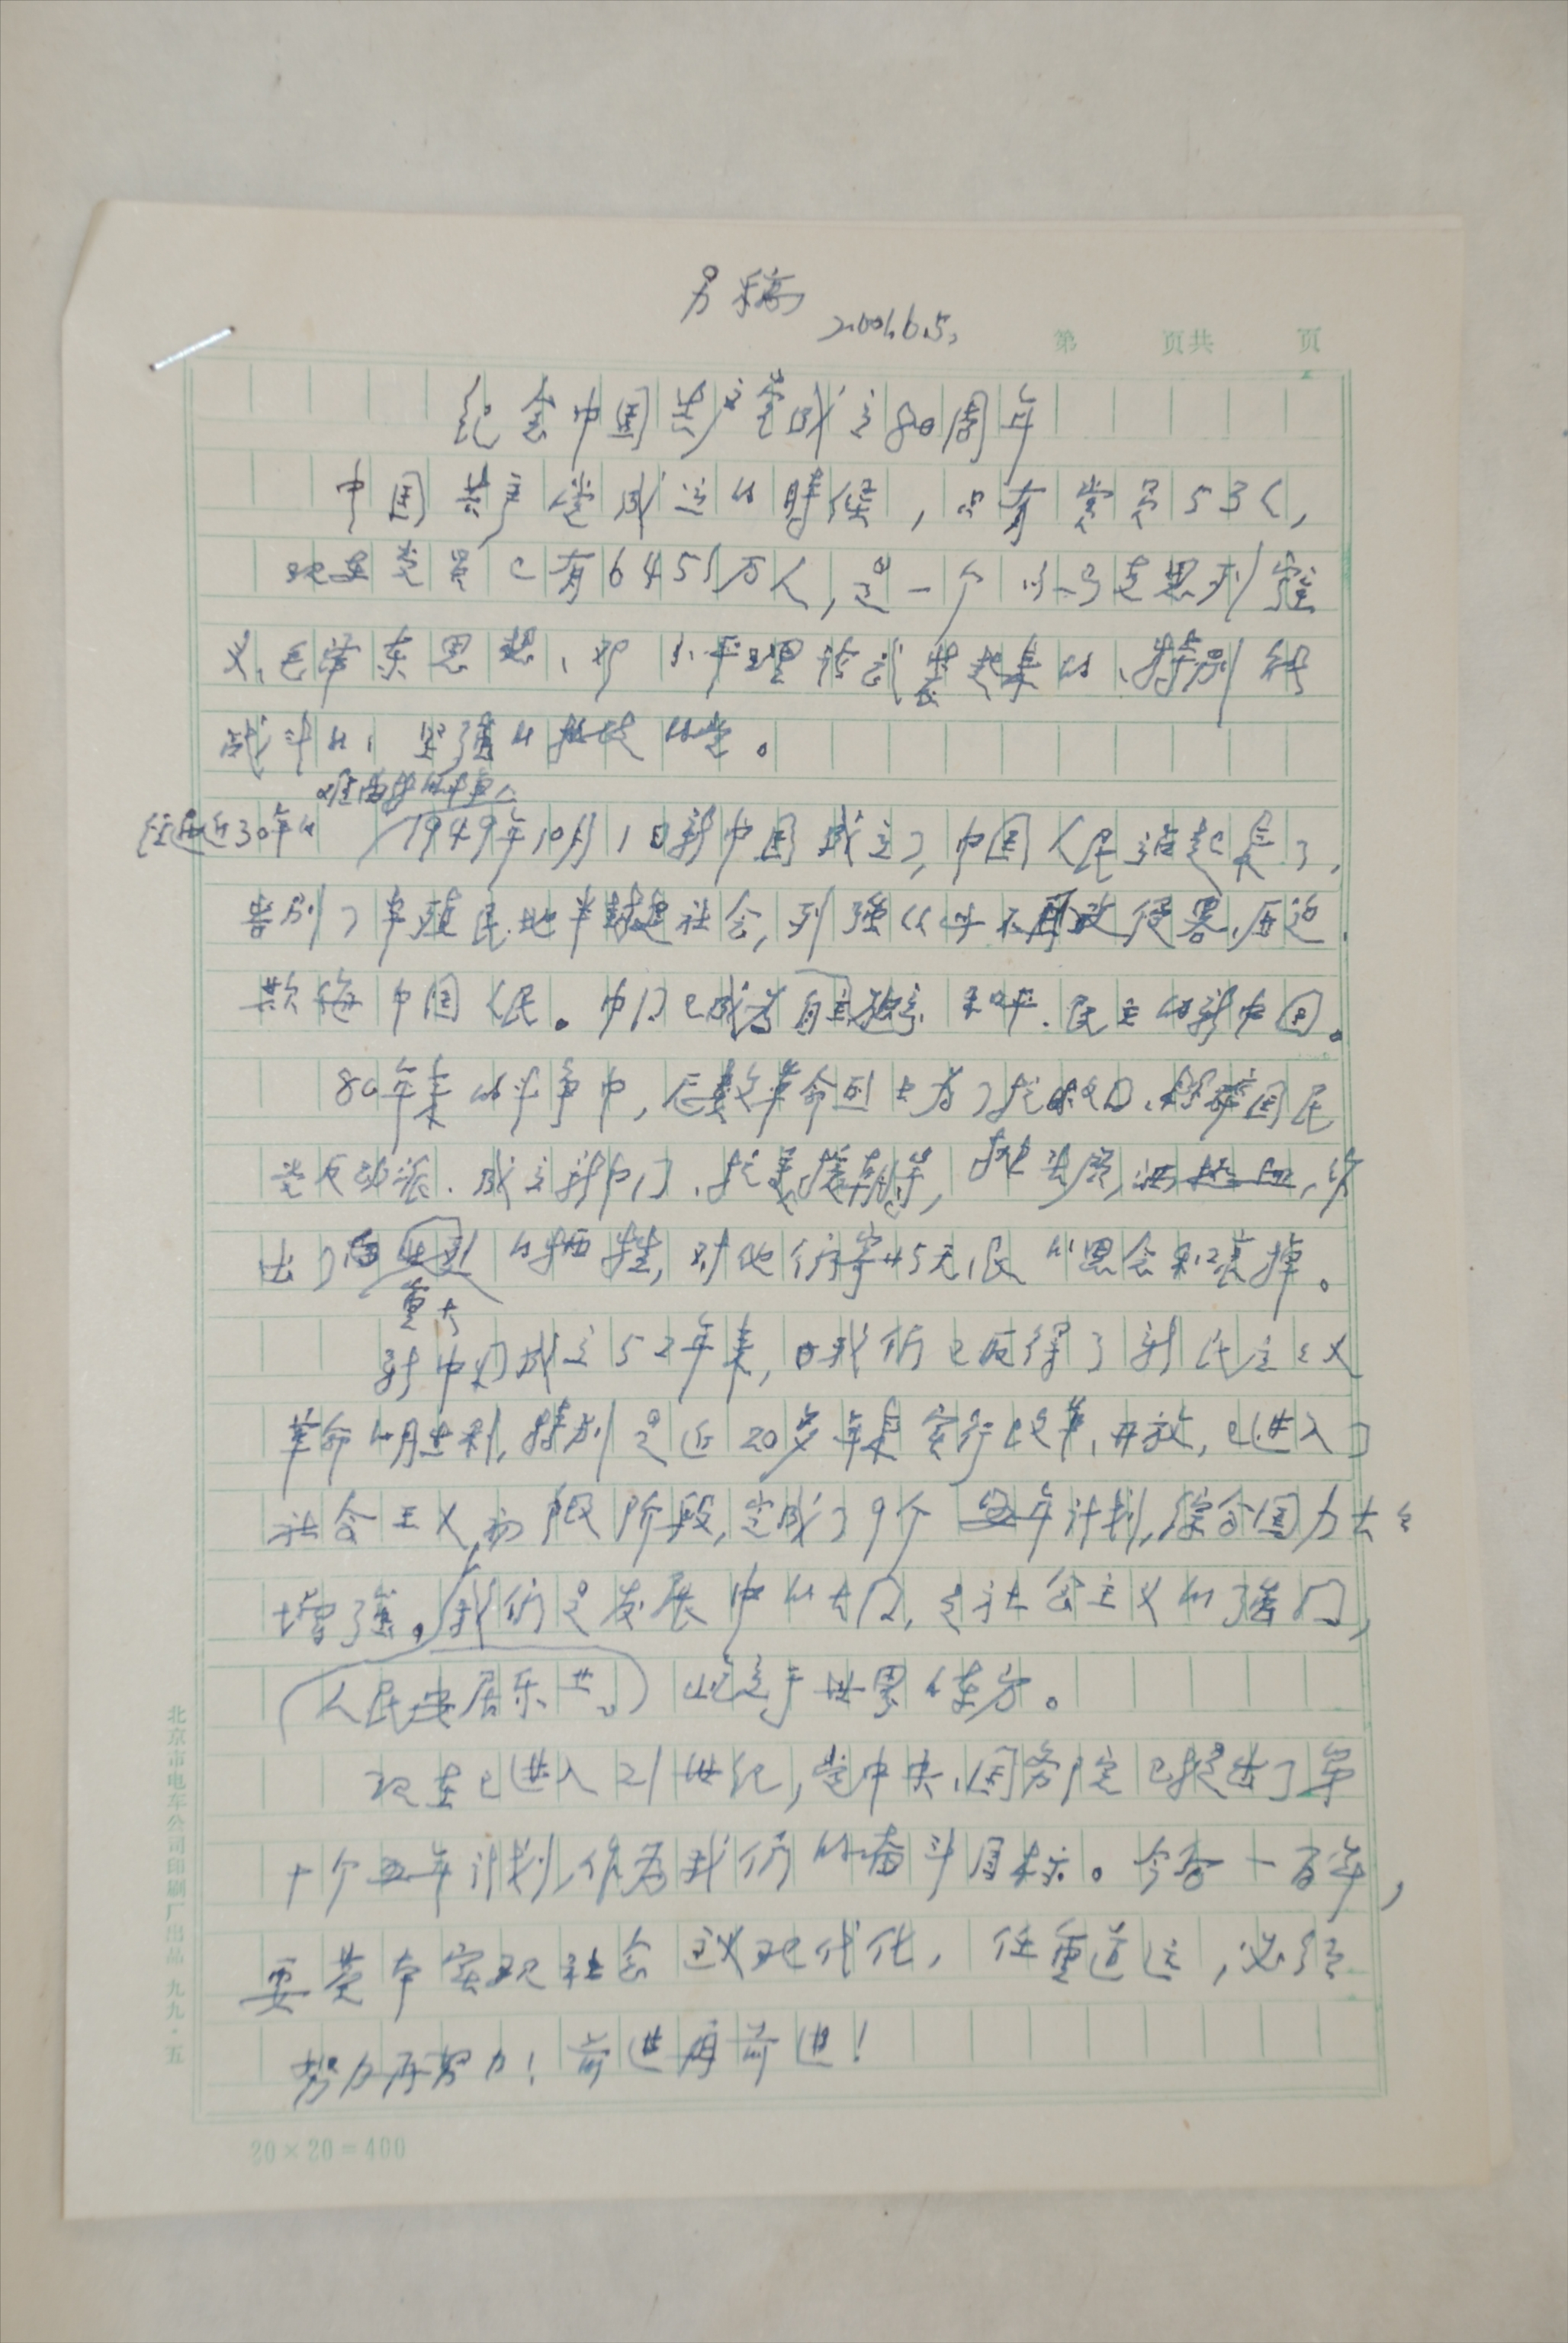 另稿
2001.6.5.
第 页共 页
纪念中国共产党成立80周年
中国共产党成立的时候,只有党员53人,
现在党员已有6451万人,是一个以马克思列宁主
义、毛泽东思想、邓小平理论武装起来的、特别能
战斗的、坚强的 的党。
经过近30年的
1949年10月1日新中国成立了,中国人民站起来了,
告别了半殖民地半封建社会,列强从此不再敢侵略、压迫、
欺侮中国人民。中国已成为自主独立、和平、民主的新中国。
80年来的斗争中,无数革命烈士为了抗日、解放国民
党反动派、成立新中国、抗美援朝等,抛头颅,洒热血,作
出了 的牺牲,对他们寄以无限的思念和哀悼。
重大
新中国成立52年来,我们已取得了新民主主义
革命的胜利,特别是近20多年来实行改革、开放,已进入了
社会主义初级阶段,完成了9个五年计划,综合国力大大
增强。我们是发展中的大国,是社会主义的强国,
(人民安居乐业。)屹立于世界的东方。
现在已进入21世纪,党中央、国务院已提出了第
十个五年计划,作为我们的奋斗目标。今后一百年,
要基本实现社会主义现代化,任重道远,必须
努力再努力!前进再前进!
北京市电车公司印刷厂出品 九九·五
20×20=400